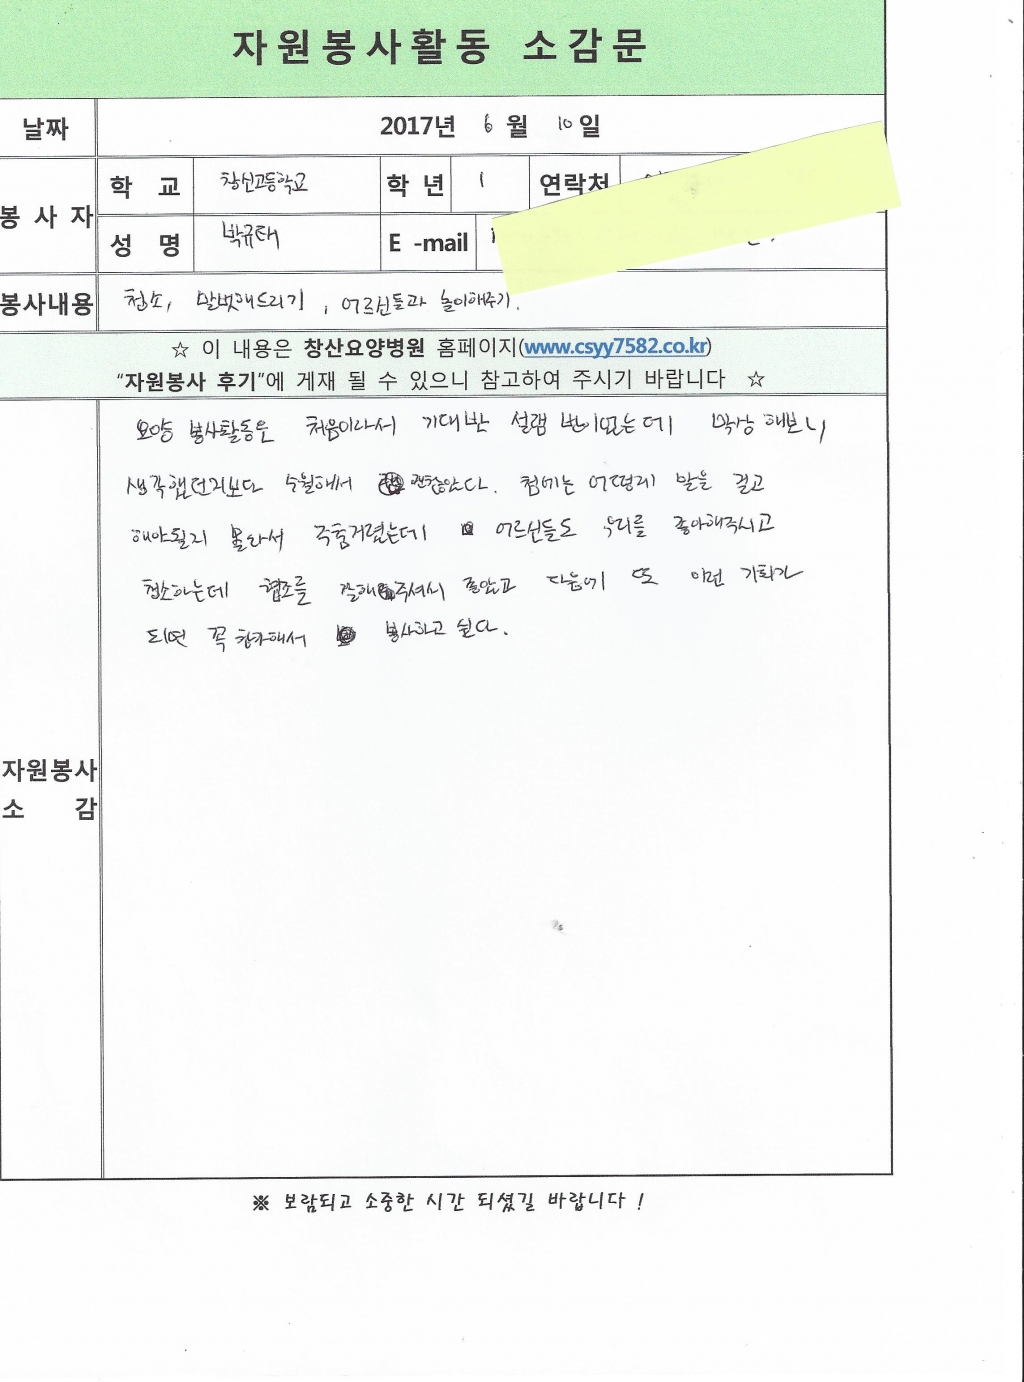 자원봉사활동 소감문
날짜 2017년 6 월 10 일
봉사자 학 교 창신고등학교 학 년 1 연락처
성 명 박규태 E -mail
봉사내용 청소, 말벗해드리기, 어르신들과 놀이해주기.
☆ 이 내용은 창산요양병원 홈페이지(www.csyy7582.co.kr)
“자원봉사 후기”에 게재 될 수 있으니 참고하여 주시기 바랍니다 ☆
요양 봉사활동은 처음이라서 기대반 설램 반이었는데 막상 해보니
생각했던거보다 수월해서 괜찮았다. 첨에는 어떻게 말을 걸고
해야될지 몰라서 주춤거렸는데 어르신들도 우리를 좋아해주시고
청소하는데 협조를 잘해주셔서 좋았고 다음에 또 이런 기회가
되면 꼭 참가해서 봉사하고 싶다.
자원봉사
소 감
※ 보람되고 소중한 시간 되셨길 바랍니다 !